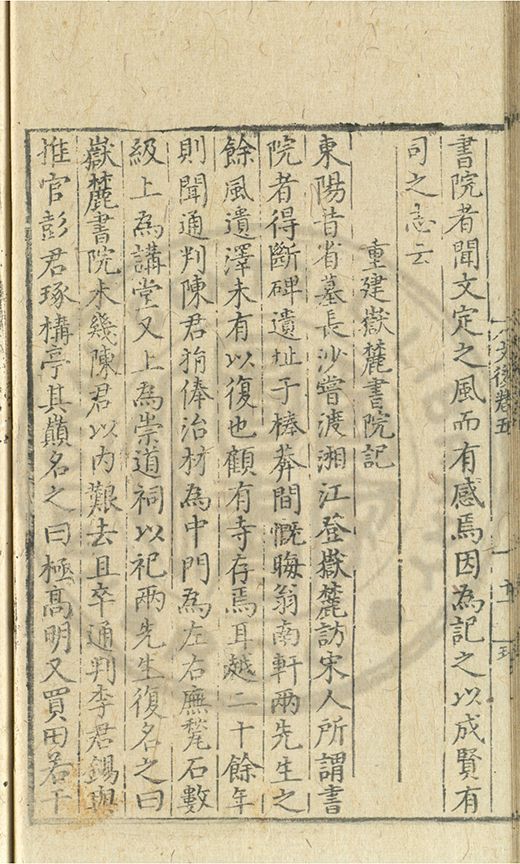 書院者聞文定之風而有感焉因為記之以成賢有
司之志云
重建嶽麓書院記
東陽昔省墓長沙嘗渡湘江登嶽麓訪宋人所謂書
院者得斷碑遺址于榛莽間慨晦翁南軒兩先生之
餘風遺澤未有以復也顧有寺存焉耳越二十餘年
則聞通判陳君捐俸治材為中門為左右廡甃石數
級上為講堂又上為崇道祠以祀兩先生復名之曰
嶽麓書院未幾陳君以內艱去且卒通判李君錫與
推官彭君琢構亭其巔名之曰極高明又買田若干